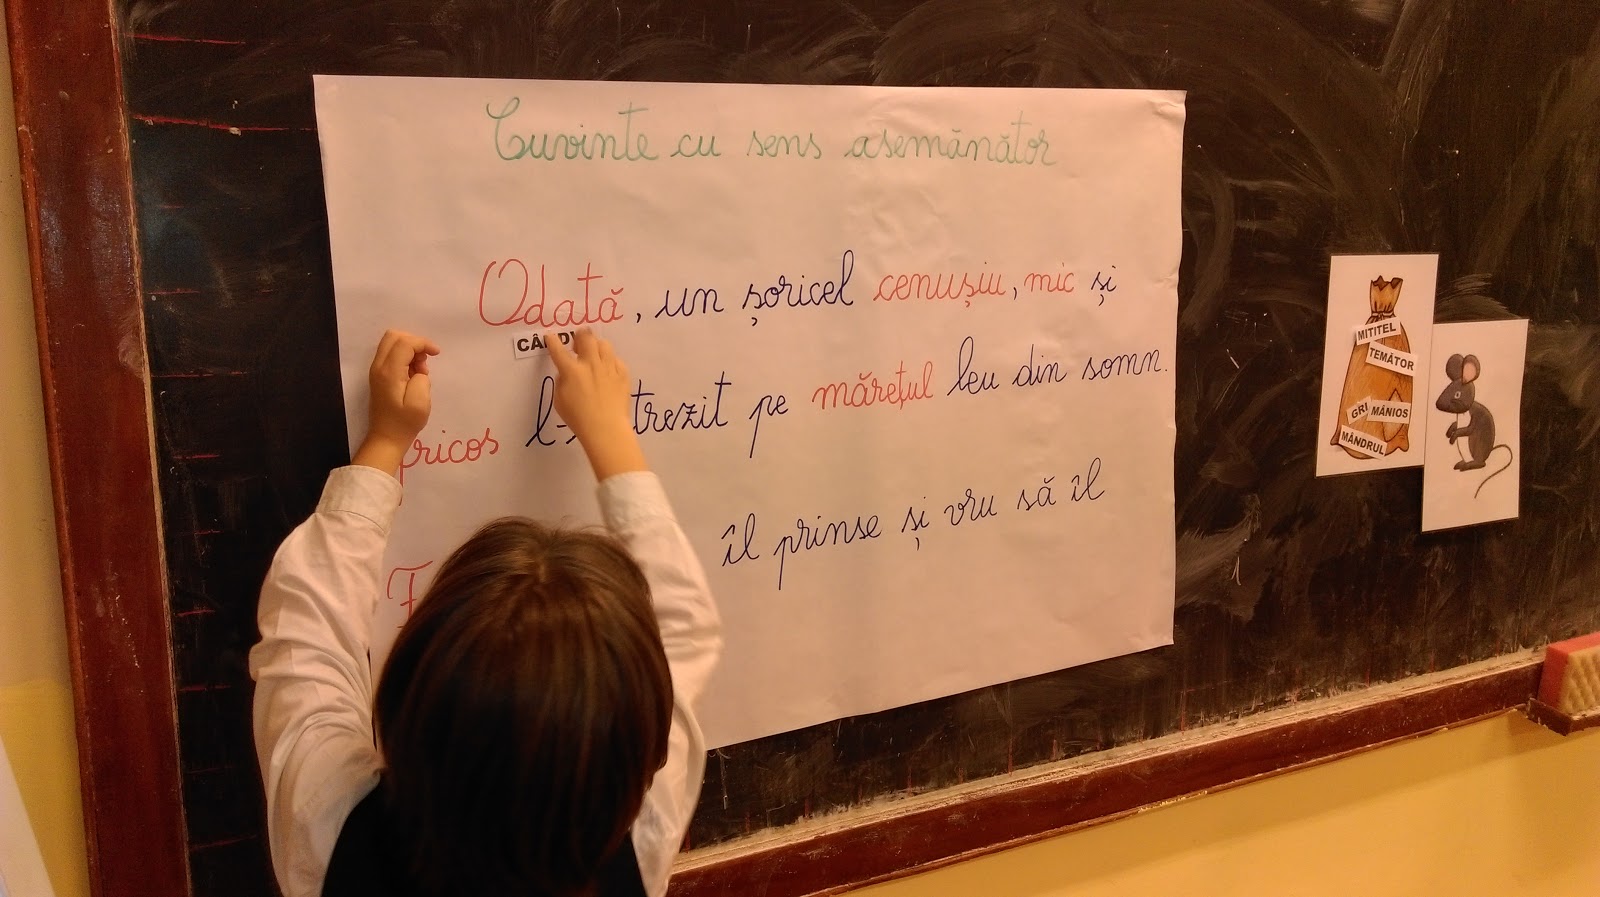 Cuvinte cu sens asemănător
Odată, un șoricel cenușiu, mic și
fricos trezit pe mărețul leu din somn.
îl prinse și vru să îl
MITITEL
TEMĂTOR
GRI
MÂNIOS
MÂNDRUL